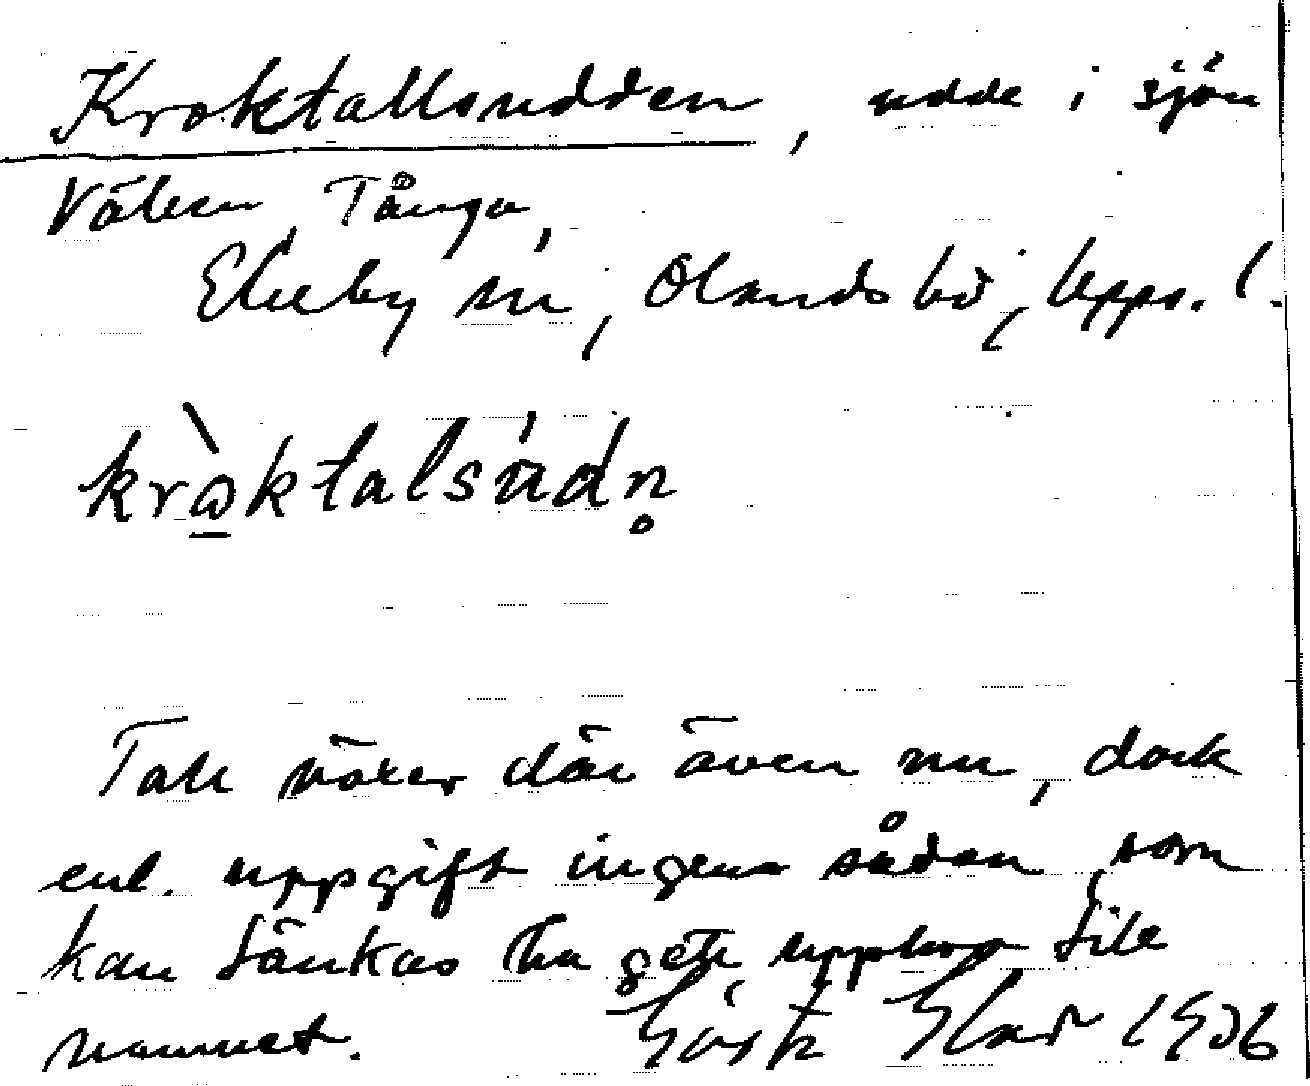 Kroktallsudden, udde i sjön
Vällen, Tånga,
Ekeby sn, Olands hd, Upps. l.
kròktalsùdn̥
Tall växer där även nu, dock
enl. uppgift ingen sådan, som
kan tänkas ha gett upphov till
namnet. Gösta 1936